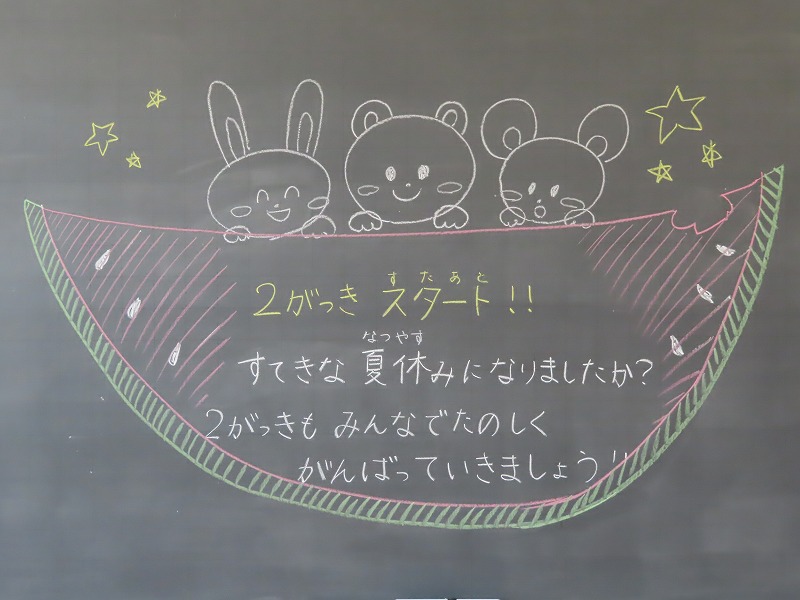 すたあと
2がっき スタート!!
なつやす
すてきな 夏休みになりましたか?
2がっきも みんなでたのしく
がんばっていきましょう!!